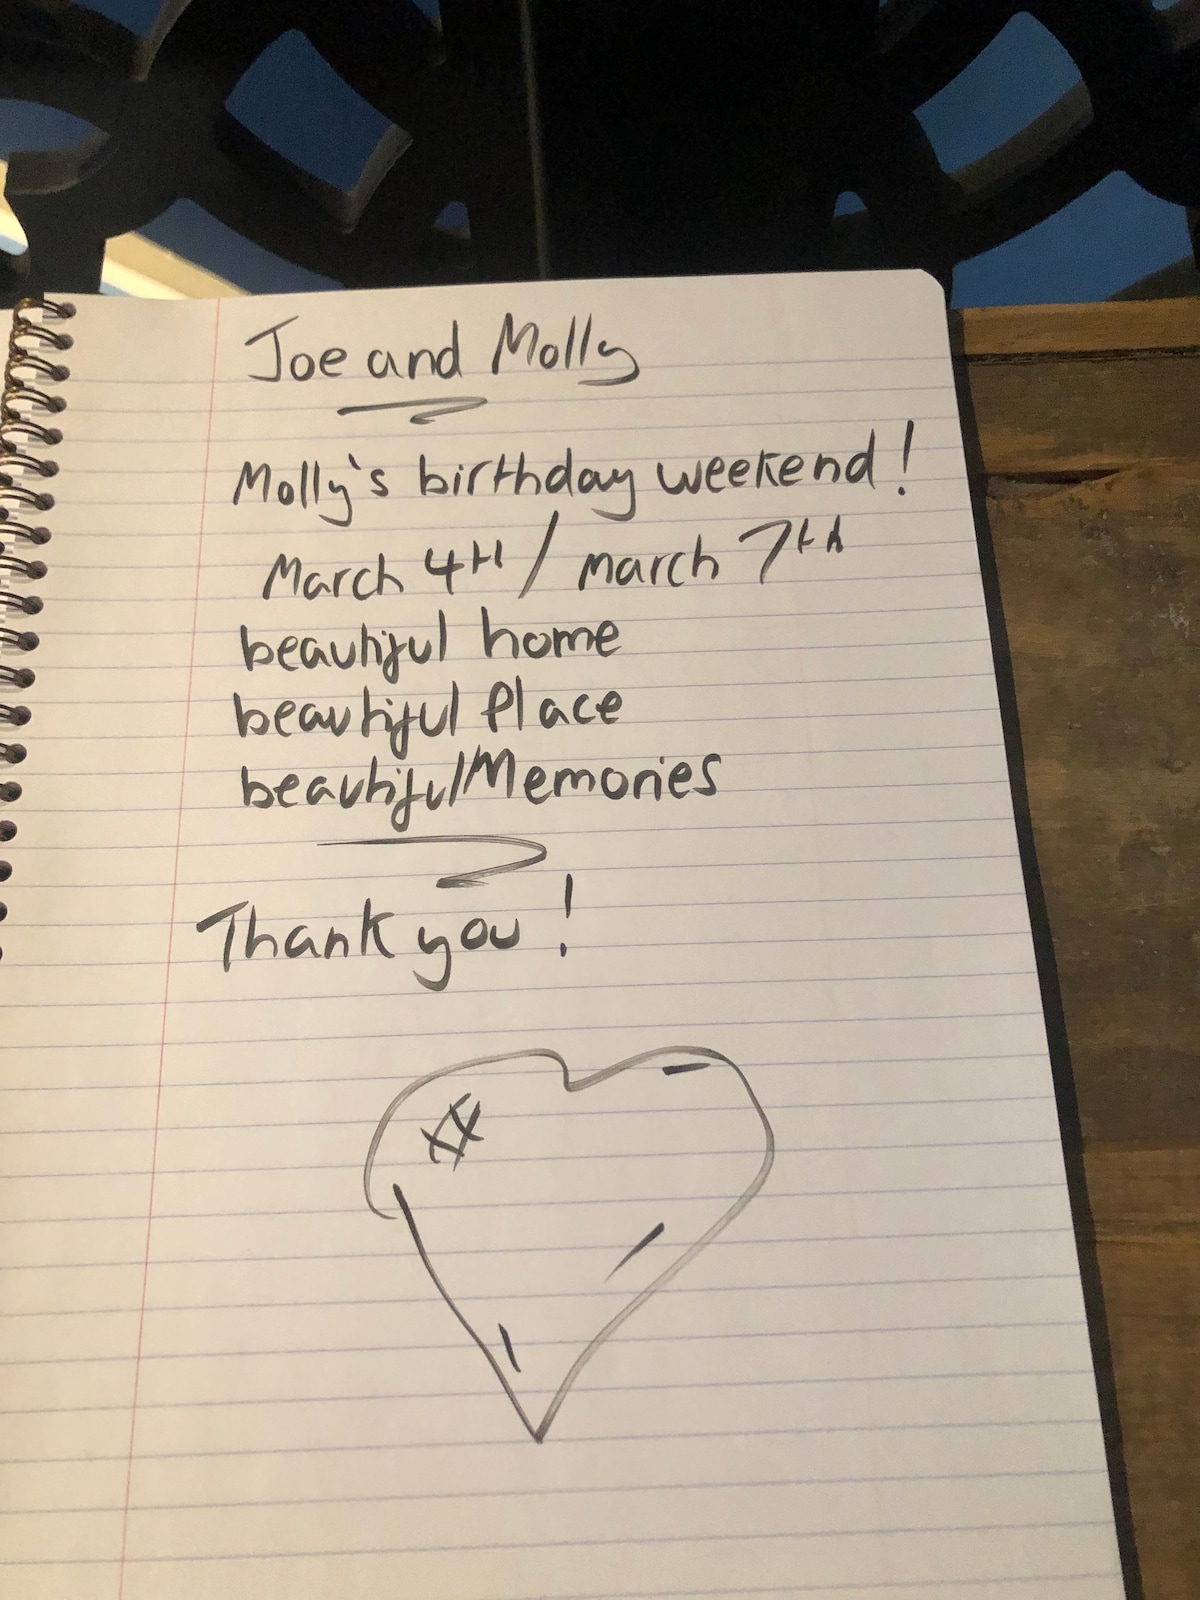 Joe and Molly
Molly's birthday weekend!
March 4th / march 7th
beautiful home
beautiful Place
beautiful Memories
Thank you!
xx